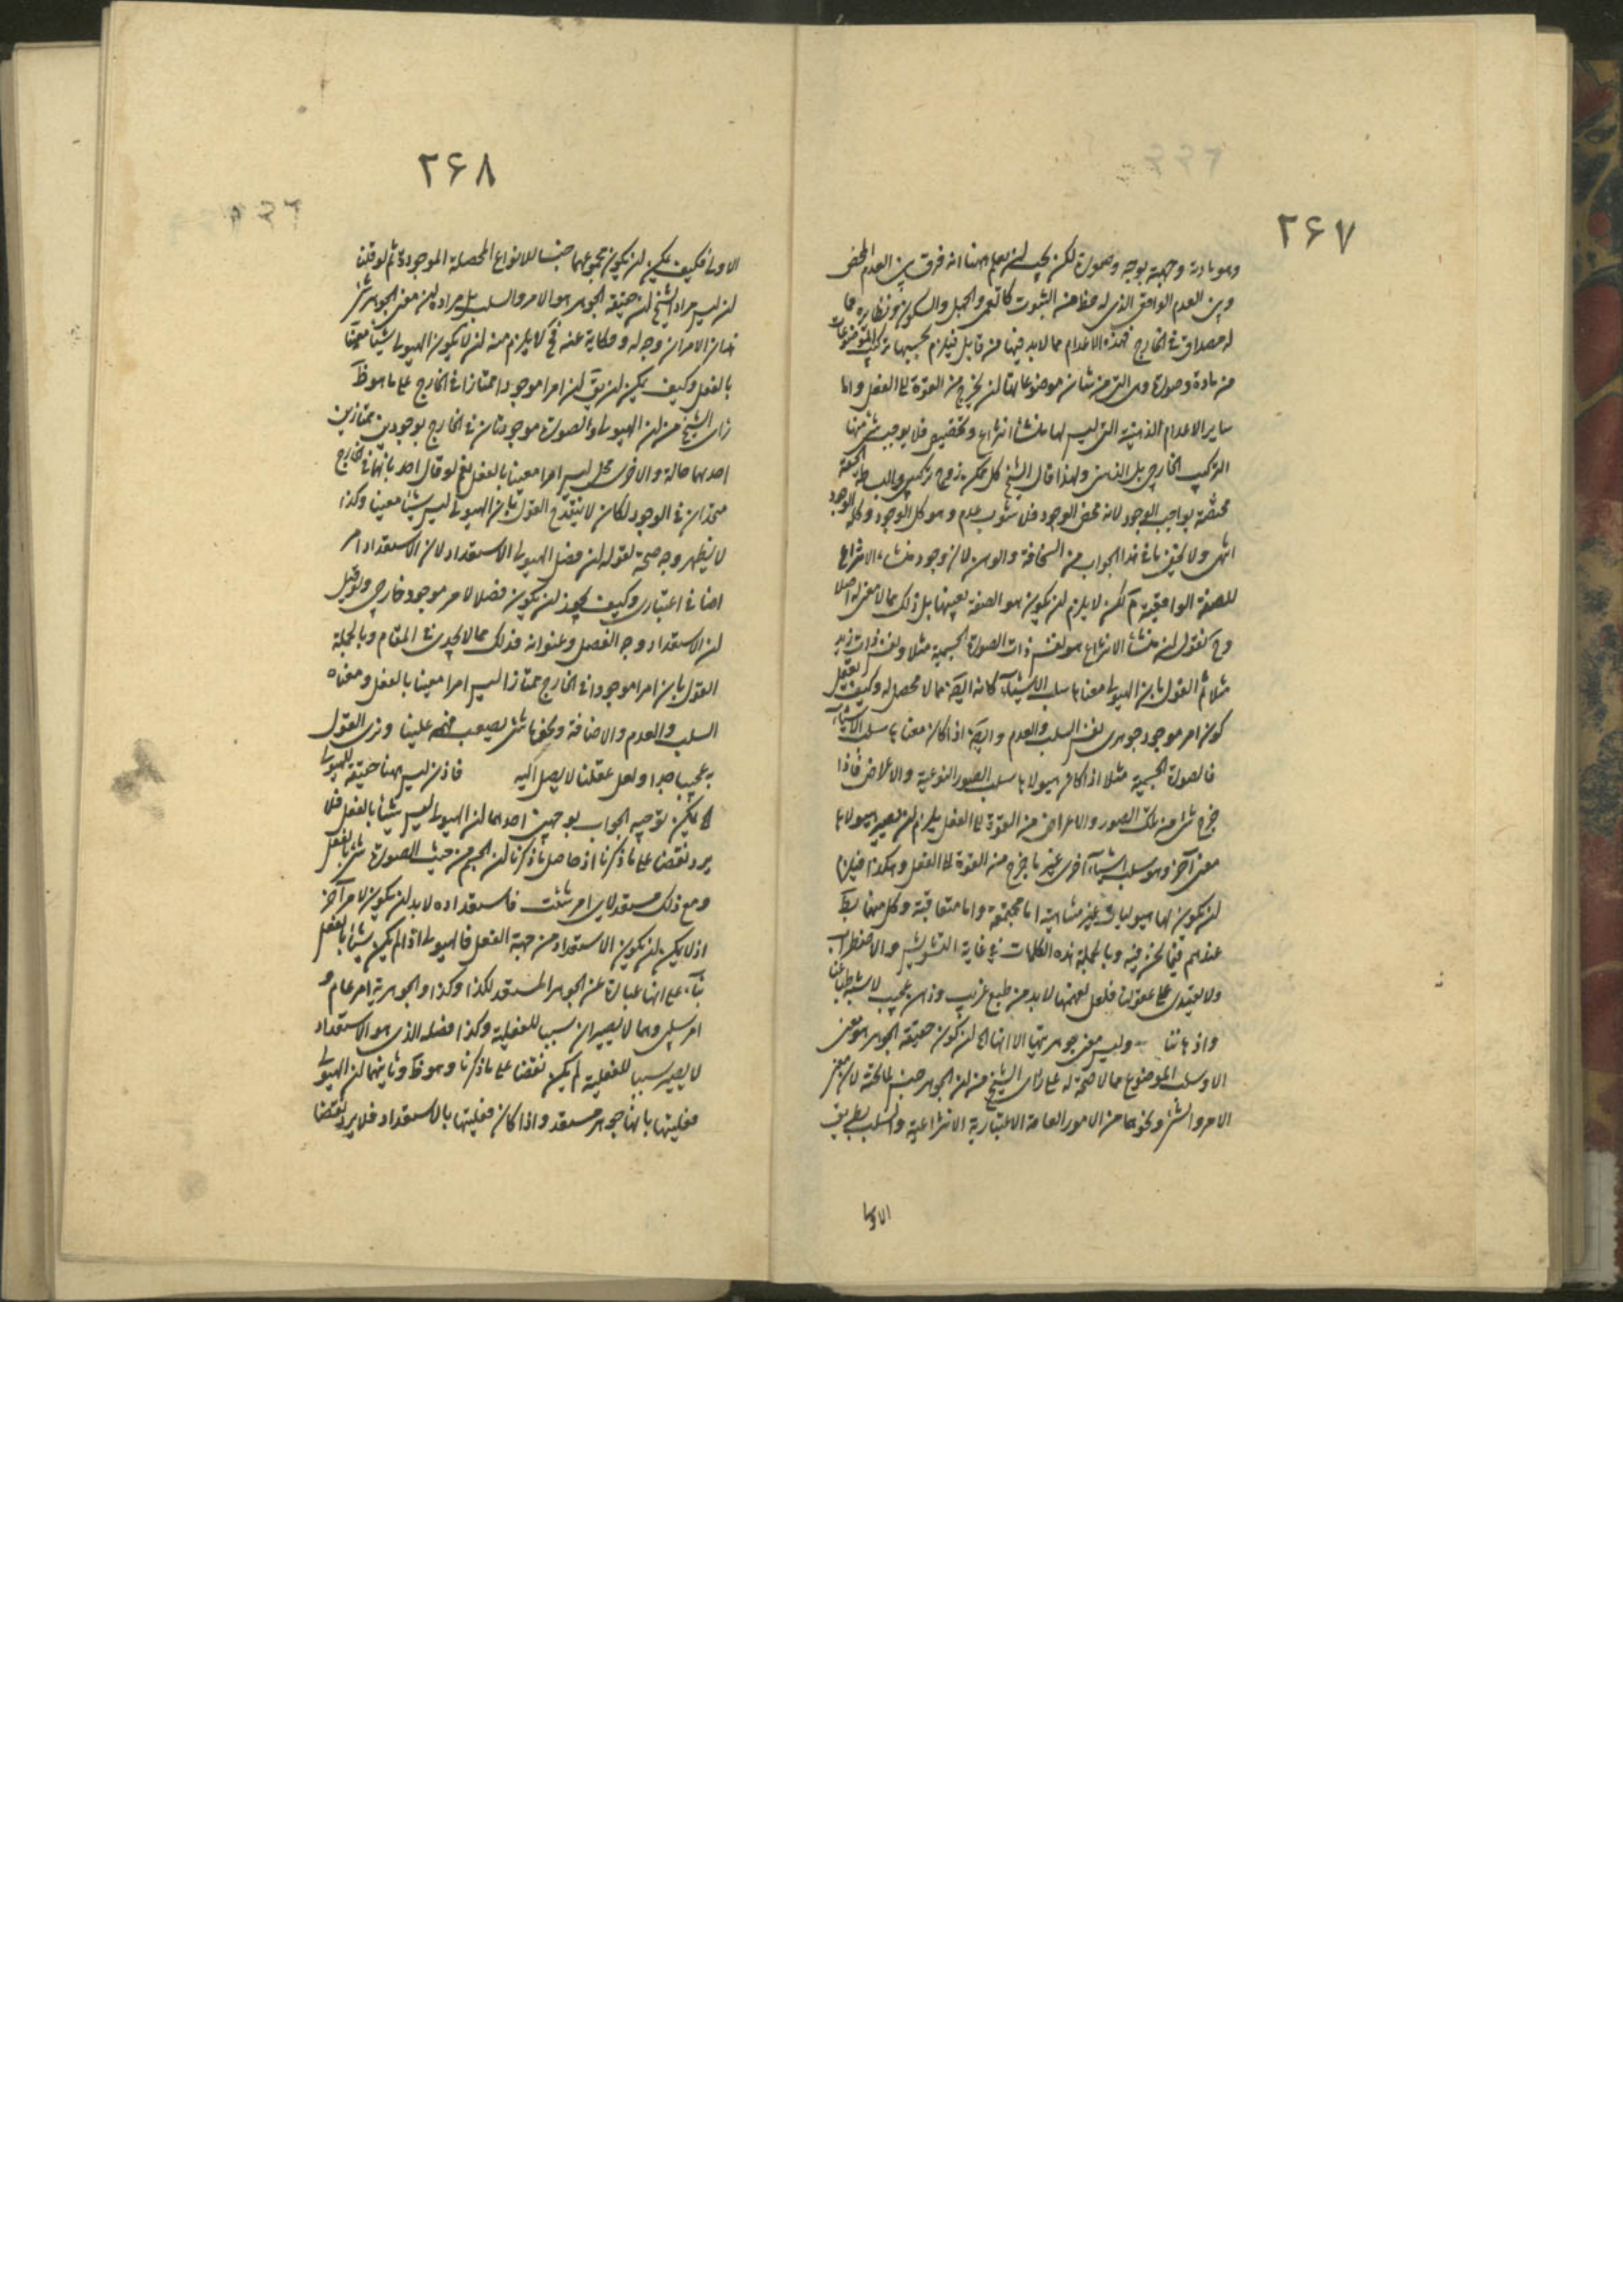 ۲۶۷
وهو مادة وجهة بوجه وصورة لكن يجب ان يعلم ههنا انه فرق بين العدم المحض
وبين العدم الواقع الذى له حظ من الثبوت كالعمى والجهل والسكون ونظايره مما
له مصداق فى الخارج فهذه الاعدام مما لا بد فيها من قابل فيلزم بحسبها تركيب الموضوعات
من مادة وصورة وهى التى من شان موضوعاتها ان يخرج من القوة الى الفعل واما
ساير الاعدام الذهنية التى ليس لها منشأ انتزاع وتخصيص فلا يوجب شئ منها
التركيب الخارجى بل الذهنى ولهذا قال الشيخ كل ممكن زوج تركيبى والبساطة الحقة
مختصة بواجب الوجود لانه محض الوجود فلا شوب عدم وهو كل الوجود وكله الوجود
انتهى ولا يخفى ما فى هذا الجواب من السخافة والوهن لان وجود منشاء الانتزاع
للصفة الواقعية م لكن لا يلزم ان يكون هو الصفة بعينها بل ذلك مما لا معنى له اصلا
وح نقول ان منشأ الانتزاع هو نفس ذات الصورة الجسمية مثلا ونفس ذات زيد
مثلا ثم القول بان الهيولى معناها سلب الاشياء كانه ايضا مما لا محصل له وكيف يعقل
كون امر موجود جوهرى نفس السلب والعدم وايضا اذا كان معناها سلب الاشياء
فالصورة الجسمية مثلا اذا كان هيولاها سلب الصور النوعية والاعراض فاذا
خرج شئ من تلك الصور والاعراض من القوة الى الفعل يلزم ان يصير هيولاها
معنى آخر وهو سلب اشياء اخرى غير ما خرج من القوة الى الفعل وهكذا فيلزم
ان يكون لها هيوليات غير متناهية اما مجتمعة واما متعاقبة وكل منهما بط
عندهم فيما نحن فيه وبالجملة هذه الكلمات فى غاية التشويش والاضطراب
ولا يهتدى على عقولنا فلعل لفهمها لا بد من طبع غريب وذهن عجيب لا يشبه طباعنا
واذهاننا وليس معنى جوهريتها الا انها الخ ان كون حقيقة الجوهر هو معنى
الامر وسلب الموضوع مما لا صحة له على راى الشيخ من ان الجوهر جنس لما تحته لان معنى
الامر والشئ ونحوهما من الامور العامة الاعتبارية الانتزاعية والسلب بطريق
الاولى
۲۶۸
الاولى فكيف يمكن ان يكون مجموعهما جنسا للانواع المحصلة الموجودة ثم لو قلنا
ان ليس مراد الشيخ ان حقيقة الجوهر هو الامر والسلب بل مراده ان معنى الجوهر شئ
هذان الامران وجه له وحكاية عنه فح لا يلزم منه ان لا يكون الهيولى شيئا معينا
بالفعل وكيف يمكن ان يق ان امرا موجودا ممتازا فى الخارج على ما هو ظ
راى الشيخ من ان الهيولى والصورة موجودتان فى الخارج بوجودين ممتازين
احدهما حالة والاخرى محل ليس امرا معينا بالفعل نعم لو قال احد بانهما فى الخارج
متحدان فى الوجود لكان لا ينقدح القول بان الهيولى ليس شيئا معينا وكذا
لا يظهر وجه صحة لقوله ان فصل الهيولى الاستعداد لان الاستعداد امر
اضافى اعتبارى وكيف يجوز ان يكون فصلا لامر موجود خارجى ولو قيل
ان الاستعداد وجه الفصل وعنوانه فذلك مما لا يجدى فى المقام وبالجملة
القول بان امرا موجودا فى الخارج ممتازا ليس امرا معينا بالفعل ومعناه
السلب والعدم والاضافة ونحوها شئ يصعب فهمه علينا ونرى القول
به عجيبا جدا ولعل عقلنا لا يصل اليه فاذن ليس ههنا حقيقة للهيولى
الخ يمكن توجيه الجواب بوجهين احدهما ان الهيولى ليس شيئا بالفعل فلا
يرد نقضا على ما ذكرنا اذ حاصل ما ذكرنا ان الجسم من حيث الصورة شئ بالفعل
ومع ذلك مستعد لاى امر شئت فاستعداده لا بد ان يكون لامر آخر
اذ لا يمكن ان يكون الاستعداد من جهة الفعل فالهيولى اذا لم يكن شيئا بالفعل
بناء على انها عبارة عن الجوهر المستعد لكذا وكذا والجوهرية امر عام و
امر سلبى وهما لا يصيران سببا للفعلية وكذا فصله الذى هو الاستعداد
لا يصير سببا للفعلية لم يكن نقضا على ما ذكرنا وهو ظ وثانيهما ان الهيولى
فعليتها بانها جوهر مستعد واذا كان فعليتها بالاستعداد فلا يرد نقضا